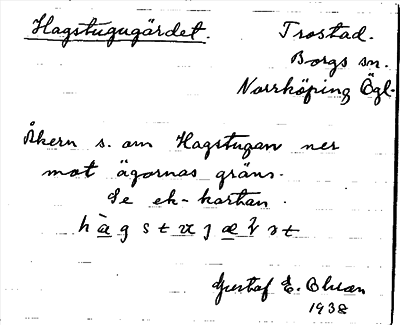 Hagstugugärdet.
Trostad.
Borgs sn.
Norrköping Ögl.
Åkern s. om Hagstugan ner
mot ägornas gräns.
Se ek-kartan.
Gustaf E.
1938